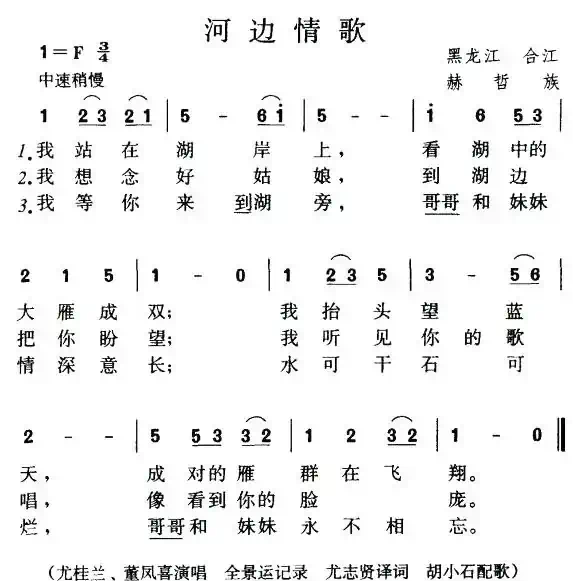 河边情歌
1=F 3/4
黑龙江 合江
中速稍慢
赫哲族
1 2 3 2 1 | 5 - 6 i | 5 - - | i 6 5 3 |
1.我 站 在 湖 岸 上, 看 湖 中的
2.我 想 念 好 姑 娘, 到 湖 边
3.我 等 你 来 到湖 旁, 哥哥 和 妹妹
2 1 5 | 1 - 0 | 1 2 3 5 | 3 - 5 6 |
大 雁 成 双; 我 抬 头 望 蓝
把 你 盼 望; 我 听 见 你 的 歌
情 深 意 长; 水 可 干 石 可
2 - - | 5 5 3 3 2 | 1 2 3 2 | 1 - 0 ‖
天, 成 对的 雁 群 在 飞 翔。
唱, 像 看到 你的 脸 庞。
烂, 哥哥 和 妹妹 永 不 相 忘。
(尤桂兰、董凤喜演唱 全景运记录 尤志贤译词 胡小石配歌)